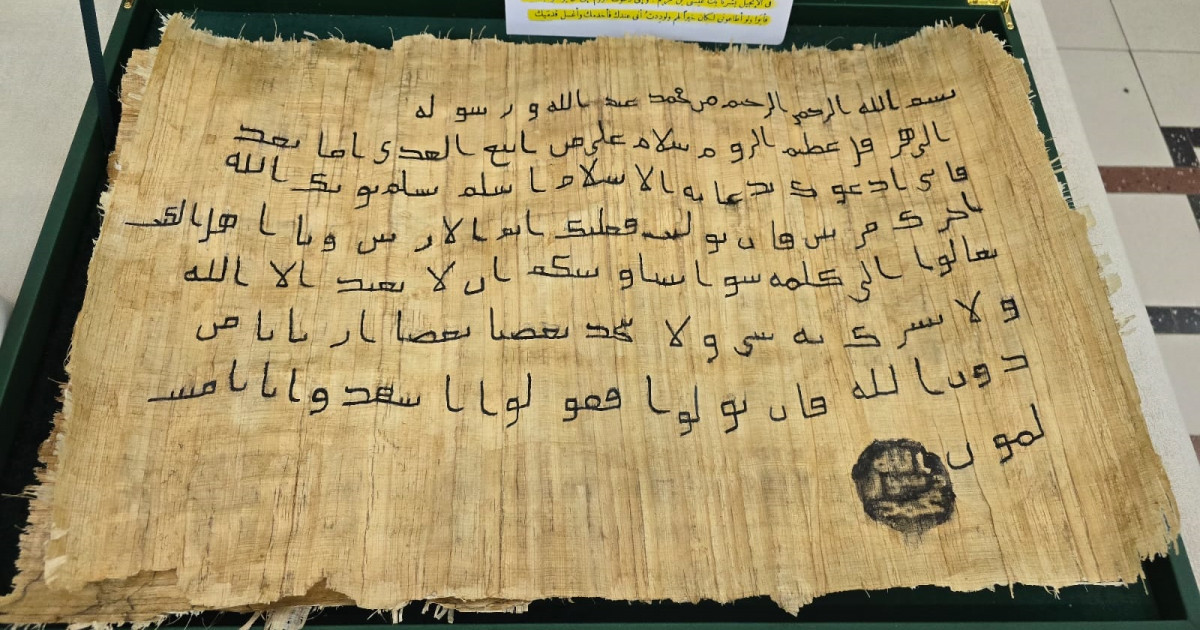 ولو أطاعون لكان خيراً لهم ولوددت أني عندك فأخدمك وأغسل قدميك
بسم الله الرحمن الرحيم من محمد عبد الله و رسوله
الى هرقل عظيم الروم سلام على من اتبع الهدى اما بعد
فانى ادعوك بدعاية الاسلام اسلم تسلم يوتك الله
اجرك مرتين فان توليت فعليك اثم الاريسين ويا اهل الكتب
تعالوا الى كلمة سوا بيننا وبينكم ان لا نعبد الا الله
ولا نشرك به شى ولا يتخذ بعضنا بعضا اربابا من
دون الله فان تولوا فقولوا اشهدوا بانا مس
لمون